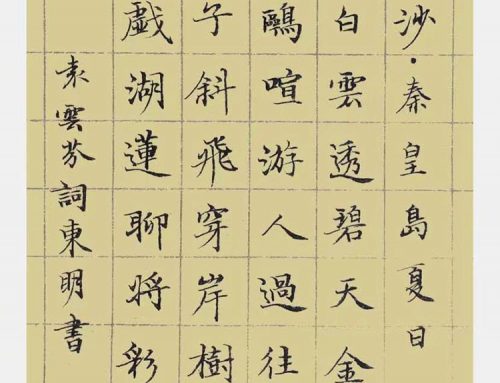 沙·秦皇島夏日
白雲透碧天金
鷗喧游人過往
子斜飛穿岸樹
戲湖蓮聊將彩
袁雲芬詞東明書